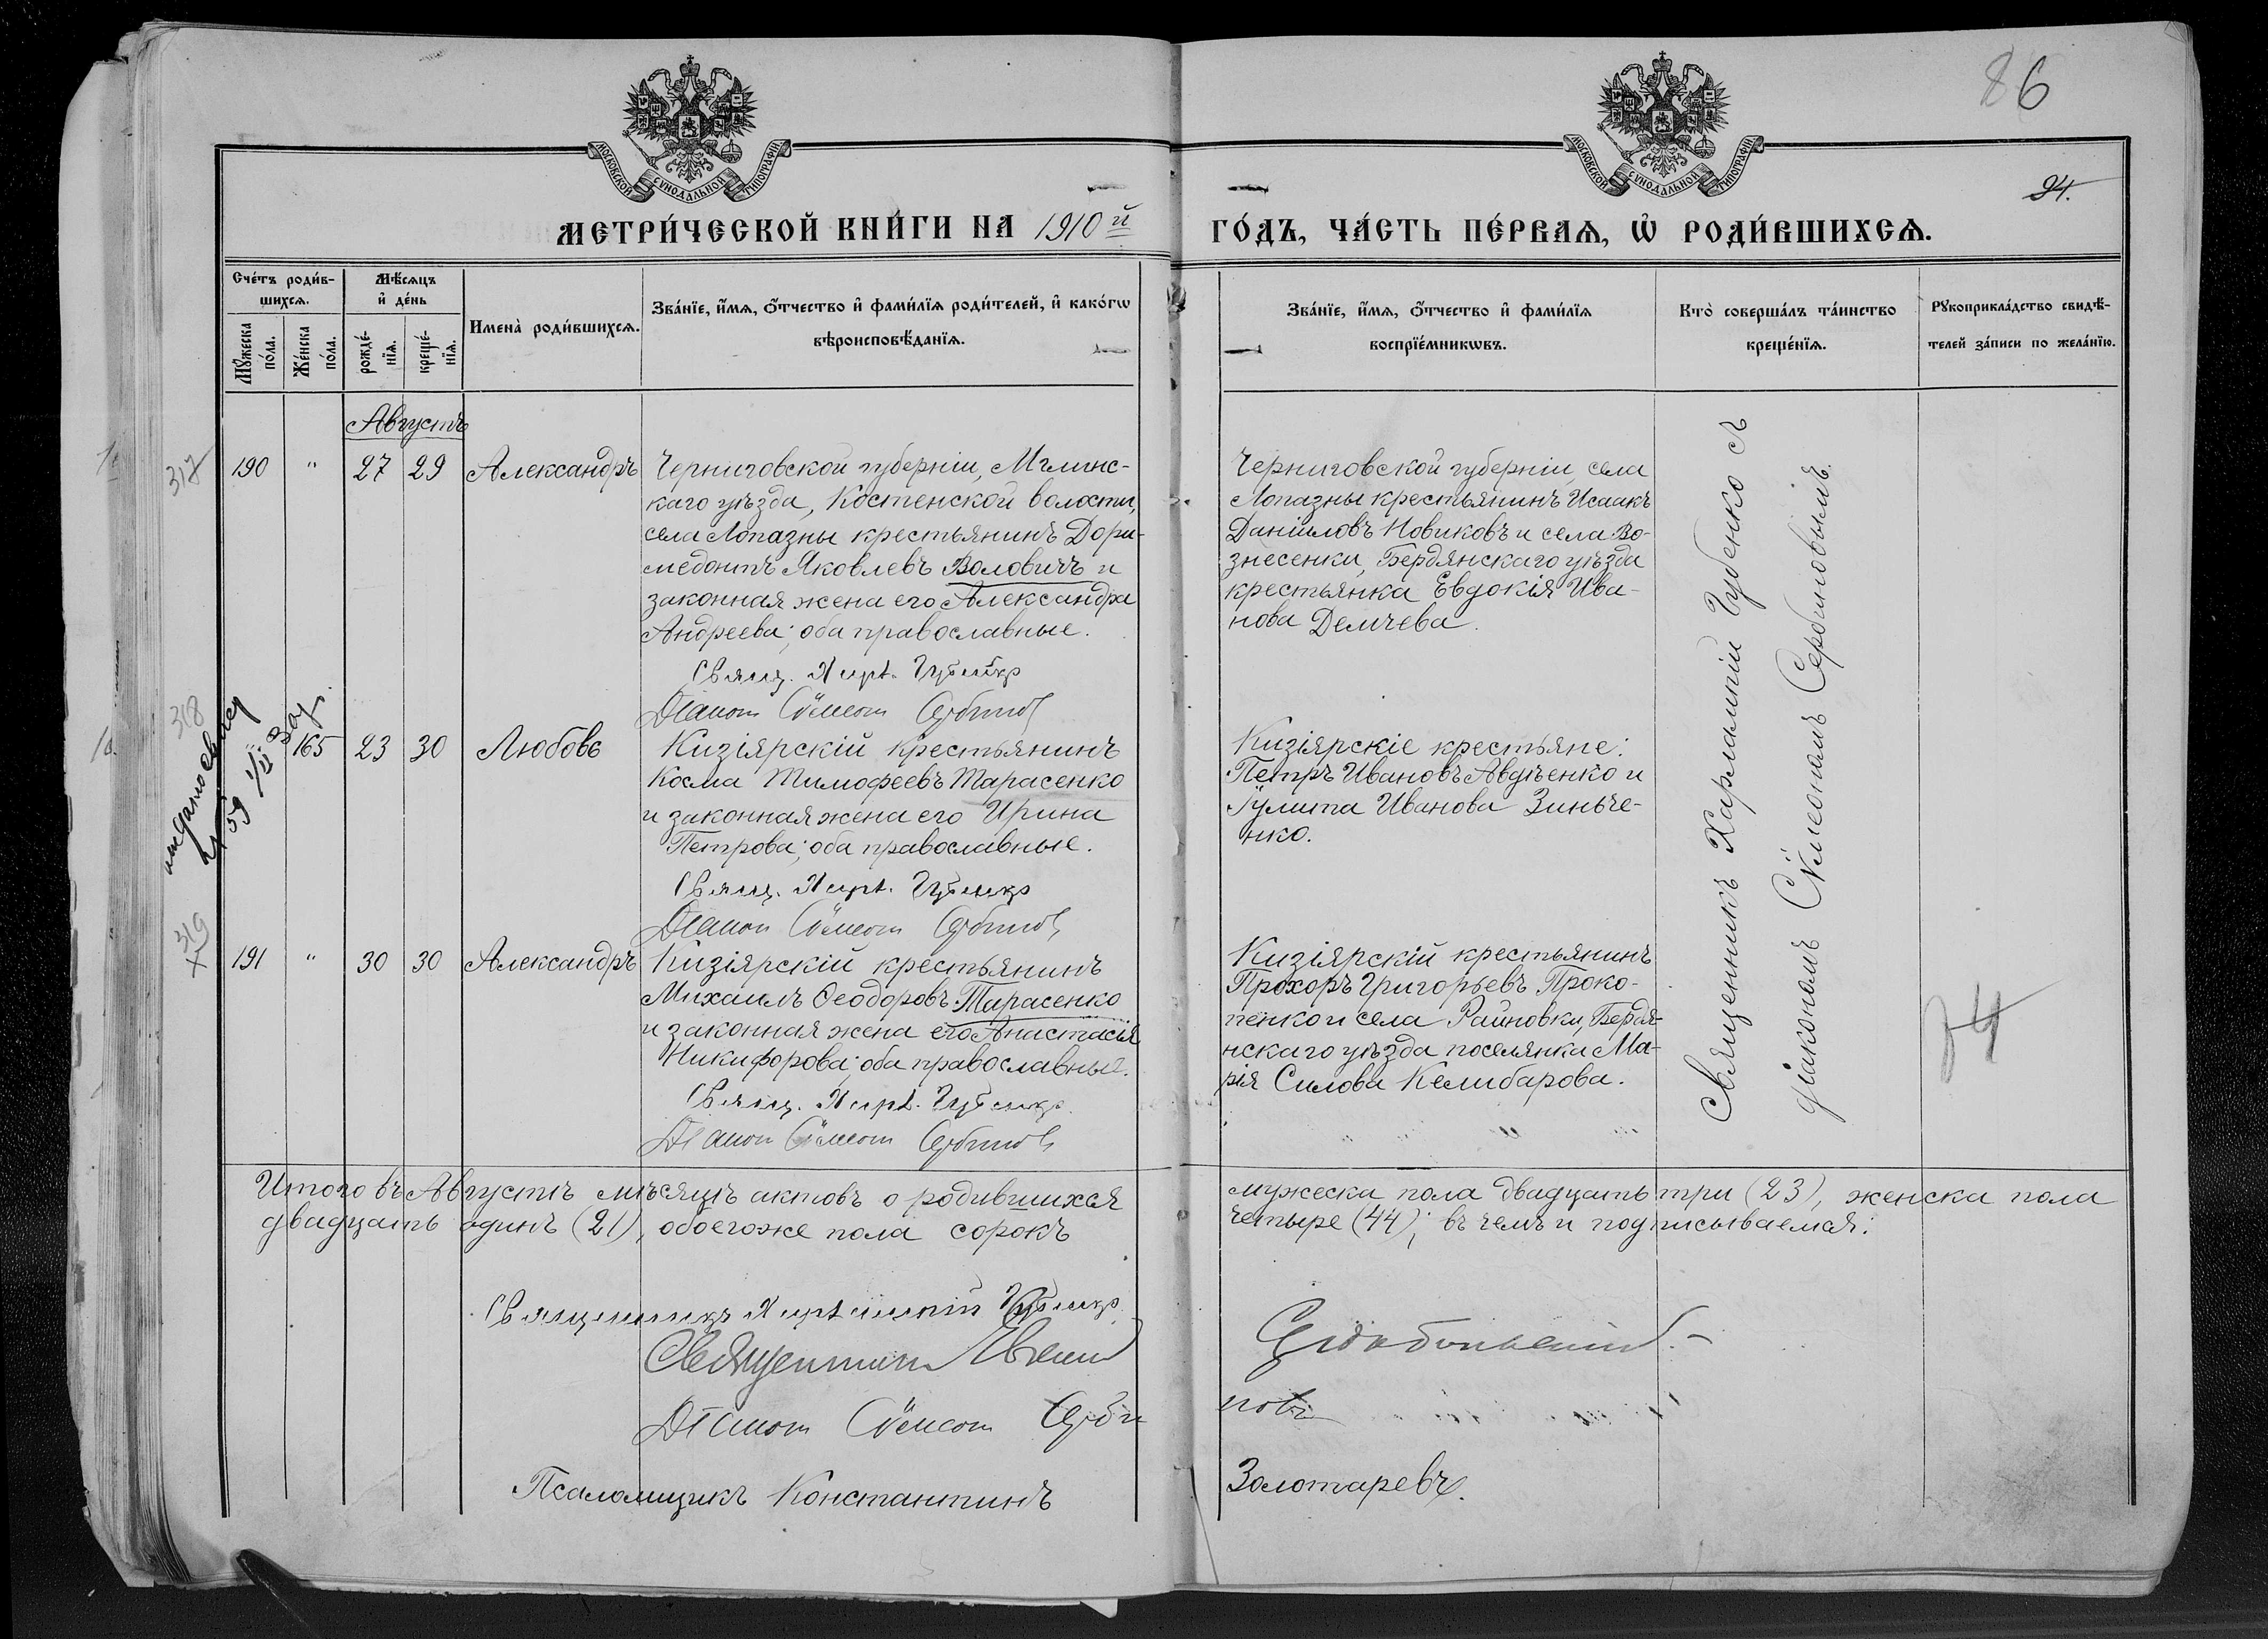 86
94.
МОСКОВСКОЙ СѴНОДАЛЬНОЙ ТИПОГРАФІИ
МОСКОВСКОЙ СѴНОДАЛЬНОЙ ТИПОГРАФІИ
МЕТРИ́ЧЕСКОЙ КНИ́ГИ НА 1910й ГО́ДЪ, ЧА́СТЬ ПЕ́РВАѦ, Ѡ҆ РОДИ́ВШИХСѦ.
Сче́тъ роди́в-
шихсѧ.
Мѣ́сѧцъ
и҆ де́нь
Мꙋ́жеска
по́ла.
Же́нска
по́ла.
рожде́-
нїѧ.
креще́-
нїѧ.
Имена̀ роди́вшихсѧ.
Зва́нїе, и҆́мѧ, ѻ҆́тчество и҆ фами́лїѧ роди́телей, и҆ како́гѡ
вѣроисповѣ́данїѧ.
Зва́нїе, и҆́мѧ, ѻ҆́тчество и҆ фами́лїѧ
воспрїе́мникѡвъ.
Кто̀ соверша́лъ та́инство
креще́нїѧ.
Рꙋкоприкла́дство свидѣ́-
телей за́писи по жела́нїю.
Августъ
317
190 " 27 29 Александръ
Черниговской губерніи, Мглинс-
каго уѣзда, Костенской волости,
села Лопазны крестьянинъ Дори-
медонтъ Яковлевъ Воловичъ и
законная жена его Александра
Андреева; оба православные.
Свящ. Харл. Губенко
Діакон Сѵмеон Сербинов
Черниговской губерніи, села
Лопазны крестьянинъ Исаакъ
Даніиловъ Новиковъ и села Во-
знесенки, Бердянскаго уѣзда
крестьянка Евдокія Ива-
нова Демчева.
318
" 165 23 30 Любовь
Кизіярскій крестьянинъ
Косма Тимофеевъ Тарасенко
и законная жена его Ирина
Петрова; оба православные.
Свящ. Харл. Губенко
Діакон Сѵмеон Сербинов
Кизіярскіе крестьяне:
Петръ Ивановъ Авдѣенко и
Іулита Иванова Зиньче-
нко.
319
191 " 30 30 Александръ
Кизіярскій крестьянинъ
Михаилъ Ѳеодоровъ Тарасенко
и законная жена его Анастасія
Никифорова; оба православные.
Свящ. Харл. Губенко
Діакон Сѵмеон Сербинов
Кизіярскій крестьянинъ
Прохоръ Григорьевъ Проко-
пенко и села Райновки, Бердя-
нскаго уѣзда поселянка Ма-
рія Силова Келибарова.
Священникъ Харлампій Губенко съ
діакономъ Сѵмеономъ Сербиновымъ.
Итого въ Августѣ мѣсяцѣ актовъ о родившихся мужеска пола двадцать три (23), женска пола
двадцать одинъ (21), обоего же пола сорокъ четыре (44); въ чемъ и подписываемся:
Священникъ Харлампій Губенко.
Священник Евгений
Діакон Сѵмеон Серби новъ
Псаломщикъ Константинъ Золотаревъ.